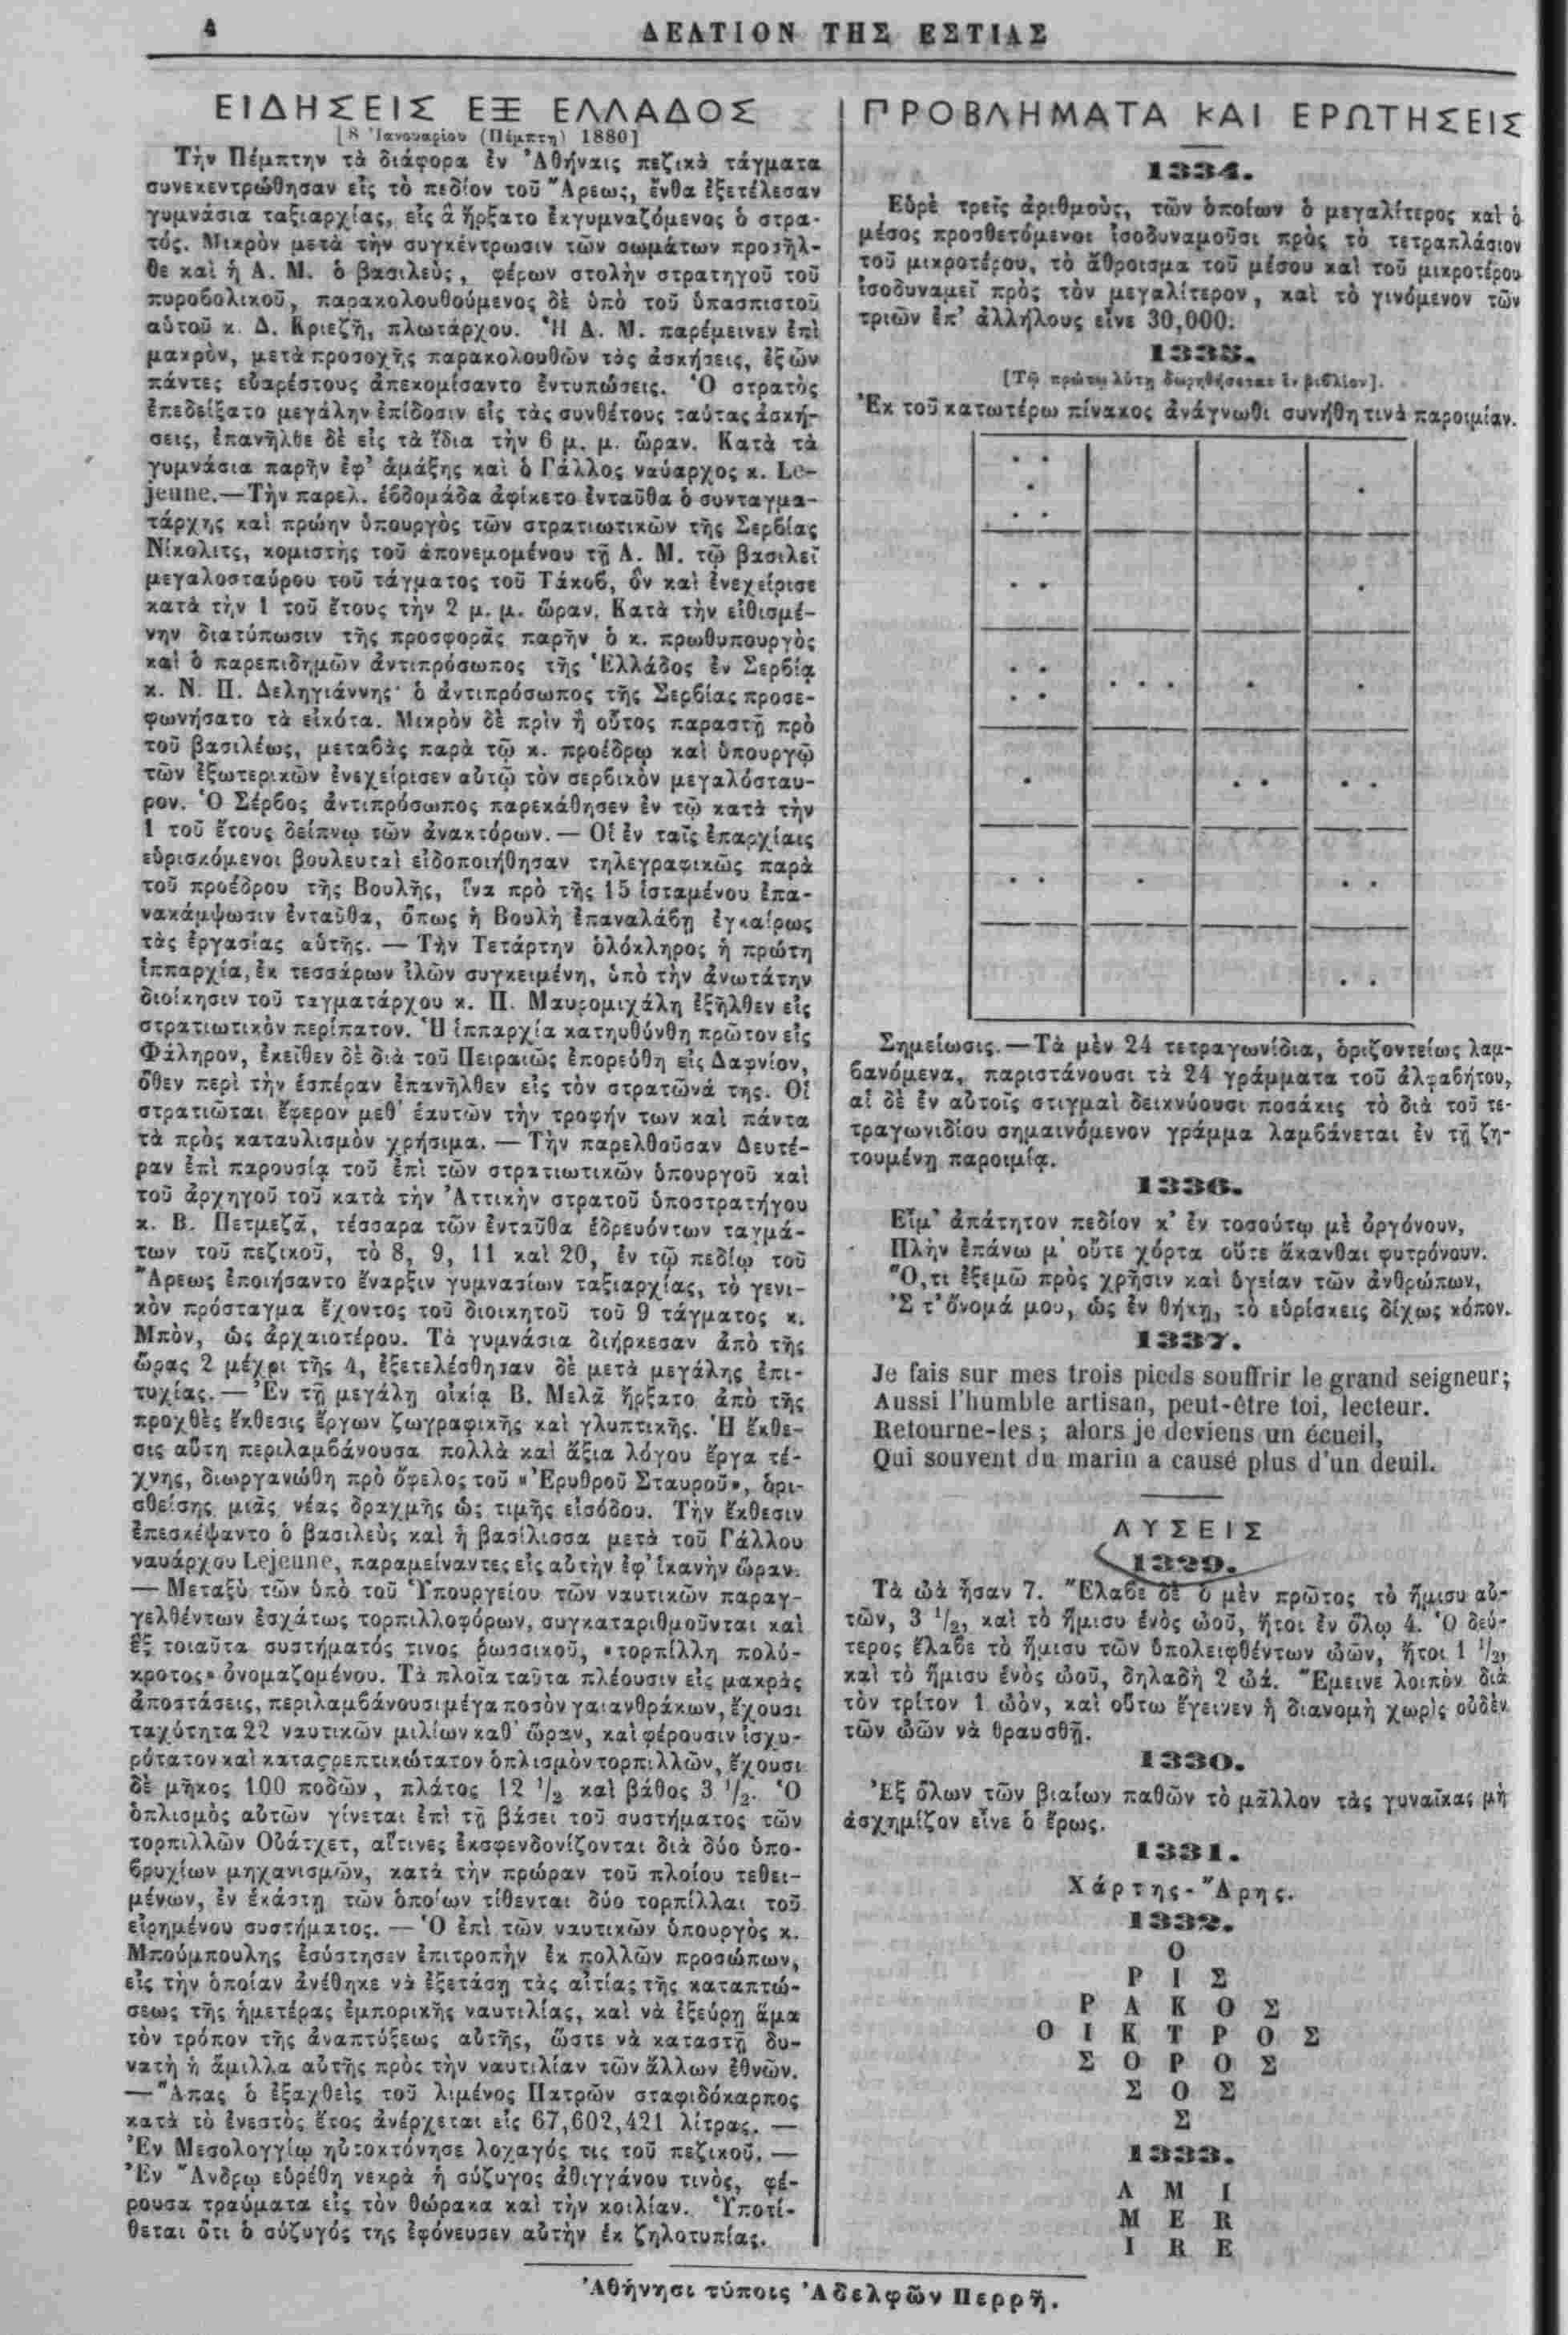 4
ΔΕΛΤΙΟΝ ΤΗΣ ΕΣΤΙΑΣ
ΕΙΔΗΣΕΙΣ ΕΞ ΕΛΛΑΔΟΣ
[8 Ἰανουαρίου (Πέμπτη) 1880]
Τὴν Πέμπτην τὰ διάφορα ἐν Ἀθήναις πεζικὰ τάγματα
συνεκεντρώθησαν εἰς τὸ πεδίον τοῦ Ἄρεως, ἔνθα ἐξετέλεσαν
γυμνάσια ταξιαρχίας, εἰς ἃ ἤρξατο ἐκγυμναζόμενος ὁ στρα-
τός. Μικρὸν μετὰ τὴν συγκέντρωσιν τῶν σωμάτων προσῆλ-
θε καὶ ἡ Α. Μ. ὁ βασιλεὺς, φέρων στολὴν στρατηγοῦ τοῦ
πυροβολικοῦ, παρακολουθούμενος δὲ ὑπὸ τοῦ ὑπασπιστοῦ
αὐτοῦ κ. Δ. Κριεζῆ, πλωτάρχου. Ἡ Α. Μ. παρέμεινεν ἐπὶ
μακρὸν, μετὰ προσοχῆς παρακολουθῶν τὰς ἀσκήσεις, ἐξ ὧν
πάντες εὐαρέστους ἀπεκομίσαντο ἐντυπώσεις. Ὁ στρατὸς
ἐπεδείξατο μεγάλην ἐπίδοσιν εἰς τὰς συνθέτους ταύτας ἀσκή-
σεις, ἐπανῆλθε δὲ εἰς τὰ ἴδια τὴν 6 μ. μ. ὥραν. Κατὰ τὰ
γυμνάσια παρῆν ἐφ' ἁμάξης καὶ ὁ Γάλλος ναύαρχος κ. Le-
jeune.—Τὴν παρελ. ἑβδομάδα ἀφίκετο ἐνταῦθα ὁ συνταγμα-
τάρχης καὶ πρώην ὑπουργὸς τῶν στρατιωτικῶν τῆς Σερβίας
Νίκολιτς, κομιστὴς τοῦ ἀπονεμομένου τῇ Α. Μ. τῷ βασιλεῖ
μεγαλοσταύρου τοῦ τάγματος τοῦ Τάκοβ, ὃν καὶ ἐνεχείρισε
κατὰ τὴν 1 τοῦ ἔτους τὴν 2 μ. μ. ὥραν. Κατὰ τὴν εἰθισμέ-
νην διατύπωσιν τῆς προσφορᾶς παρῆν ὁ κ. πρωθυπουργὸς
καὶ ὁ παρεπιδημῶν ἀντιπρόσωπος τῆς Ἑλλάδος ἐν Σερβίᾳ
κ. Ν. Π. Δεληγιάννης· ὁ ἀντιπρόσωπος τῆς Σερβίας προσε-
φωνήσατο τὰ εἰκότα. Μικρὸν δὲ πρὶν ἢ οὗτος παραστῇ πρὸ
τοῦ βασιλέως, μεταβὰς παρὰ τῷ κ. προέδρῳ καὶ ὑπουργῷ
τῶν ἐξωτερικῶν ἐνεχείρισεν αὐτῷ τὸν σερβικὸν μεγαλόσταυ-
ρον. Ὁ Σέρβος ἀντιπρόσωπος παρεκάθησεν ἐν τῷ κατὰ τὴν
1 τοῦ ἔτους δείπνῳ τῶν ἀνακτόρων.— Οἱ ἐν ταῖς ἐπαρχίαις
εὑρισκόμενοι βουλευταὶ εἰδοποιήθησαν τηλεγραφικῶς παρὰ
τοῦ προέδρου τῆς Βουλῆς, ἵνα πρὸ τῆς 15 ἱσταμένου ἐπα-
νακάμψωσιν ἐνταῦθα, ὅπως ἡ Βουλὴ ἐπαναλάβῃ ἐγκαίρως
τὰς ἐργασίας αὑτῆς. — Τὴν Τετάρτην ὁλόκληρος ἡ πρώτη
ἱππαρχία, ἐκ τεσσάρων ἰλῶν συγκειμένη, ὑπὸ τὴν ἀνωτάτην
διοίκησιν τοῦ ταγματάρχου κ. Π. Μαυρομιχάλη ἐξῆλθεν εἰς
στρατιωτικὸν περίπατον. Ἡ ἱππαρχία κατηυθύνθη πρῶτον εἰς
Φάληρον, ἐκεῖθεν δὲ διὰ τοῦ Πειραιῶς ἐπορεύθη εἰς Δαφνίον,
ὅθεν περὶ τὴν ἑσπέραν ἐπανῆλθεν εἰς τὸν στρατῶνά της. Οἱ
στρατιῶται ἔφερον μεθ' ἑαυτῶν τὴν τροφήν των καὶ πάντα
τὰ πρὸς καταυλισμὸν χρήσιμα. — Τὴν παρελθοῦσαν Δευτέ-
ραν ἐπὶ παρουσίᾳ τοῦ ἐπὶ τῶν στρατιωτικῶν ὑπουργοῦ καὶ
τοῦ ἀρχηγοῦ τοῦ κατὰ τὴν Ἀττικὴν στρατοῦ ὑποστρατήγου
κ. Β. Πετμεζᾶ, τέσσαρα τῶν ἐνταῦθα ἑδρευόντων ταγμά-
των τοῦ πεζικοῦ, τὸ 8, 9, 11 καὶ 20, ἐν τῷ πεδίῳ τοῦ
Ἄρεως ἐποιήσαντο ἔναρξιν γυμνασίων ταξιαρχίας, τὸ γενι-
κὸν πρόσταγμα ἔχοντος τοῦ διοικητοῦ τοῦ 9 τάγματος κ.
Μπὸν, ὡς ἀρχαιοτέρου. Τὰ γυμνάσια διήρκεσαν ἀπὸ τῆς
ὥρας 2 μέχρι τῆς 4, ἐξετελέσθησαν δὲ μετὰ μεγάλης ἐπι-
τυχίας.— Ἐν τῇ μεγάλῃ οἰκίᾳ Β. Μελᾶ ἤρξατο ἀπὸ τῆς
προχθὲς ἔκθεσις ἔργων ζωγραφικῆς καὶ γλυπτικῆς. Ἡ ἔκθε-
σις αὕτη περιλαμβάνουσα πολλὰ καὶ ἄξια λόγου ἔργα τέ-
χνης, διωργανώθη πρὸ ὄφελος τοῦ «Ἐρυθροῦ Σταυροῦ», ὁρι-
σθείσης μιᾶς νέας δραχμῆς ὡς τιμῆς εἰσόδου. Τὴν ἔκθεσιν
ἐπεσκέψαντο ὁ βασιλεὺς καὶ ἡ βασίλισσα μετὰ τοῦ Γάλλου
ναυάρχου Lejeune, παραμείναντες εἰς αὐτὴν ἐφ' ἱκανὴν ὥραν.
— Μεταξὺ τῶν ὑπὸ τοῦ Ὑπουργείου τῶν ναυτικῶν παραγ-
γελθέντων ἐσχάτως τορπιλλοφόρων, συγκαταριθμοῦνται καὶ
ἓξ τοιαῦτα συστήματός τινος ῥωσσικοῦ, «τορπίλλη πολύ-
κροτος» ὀνομαζομένου. Τὰ πλοῖα ταῦτα πλέουσιν εἰς μακρὰς
ἀποστάσεις, περιλαμβάνουσι μέγα ποσὸν γαιανθράκων, ἔχουσι
ταχύτητα 22 ναυτικῶν μιλίων καθ' ὥραν, καὶ φέρουσιν ἰσχυ-
ρότατον καὶ καταςρεπτικώτατον ὁπλισμὸν τορπιλλῶν, ἔχουσι
δὲ μῆκος 100 ποδῶν, πλάτος 12 1/2 καὶ βάθος 3 1/2. Ὁ
ὁπλισμὸς αὐτῶν γίνεται ἐπὶ τῇ βάσει τοῦ συστήματος τῶν
τορπιλλῶν Οὐάτχετ, αἵτινες ἐκσφενδονίζονται διὰ δύο ὑπο-
βρυχίων μηχανισμῶν, κατὰ τὴν πρώραν τοῦ πλοίου τεθει-
μένων, ἐν ἑκάστῃ τῶν ὁποίων τίθενται δύο τορπίλλαι τοῦ
εἰρημένου συστήματος. — Ὁ ἐπὶ τῶν ναυτικῶν ὑπουργὸς κ.
Μπούμπουλης ἐσύστησεν ἐπιτροπὴν ἐκ πολλῶν προσώπων,
εἰς τὴν ὁποίαν ἀνέθηκε νὰ ἐξετάσῃ τὰς αἰτίας τῆς καταπτώ-
σεως τῆς ἡμετέρας ἐμπορικῆς ναυτιλίας, καὶ νὰ ἐξεύρῃ ἅμα
τὸν τρόπον τῆς ἀναπτύξεως αὐτῆς, ὥστε νὰ καταστῇ δυ-
νατὴ ἡ ἅμιλλα αὐτῆς πρὸς τὴν ναυτιλίαν τῶν ἄλλων ἐθνῶν.
— Ἅπας ὁ ἐξαχθεὶς τοῦ λιμένος Πατρῶν σταφιδόκαρπος
κατὰ τὸ ἐνεστὸς ἔτος ἀνέρχεται εἰς 67,602,421 λίτρας. —
Ἐν Μεσολογγίῳ ηὐτοκτόνησε λοχαγός τις τοῦ πεζικοῦ. —
Ἐν Ἄνδρῳ εὑρέθη νεκρὰ ἡ σύζυγος ἀθιγγάνου τινὸς, φέ-
ρουσα τραύματα εἰς τὸν θώρακα καὶ τὴν κοιλίαν. Ὑποτί-
θεται ὅτι ὁ σύζυγός της ἐφόνευσεν αὐτὴν ἐκ ζηλοτυπίας.
ΠΡΟΒΛΗΜΑΤΑ ΚΑΙ ΕΡΩΤΗΣΕΙΣ
1334.
Εὑρὲ τρεῖς ἀριθμοὺς, τῶν ὁποίων ὁ μεγαλίτερος καὶ ὁ
μέσος προσθετόμενοι ἰσοδυναμοῦσι πρὸς τὸ τετραπλάσιον
τοῦ μικροτέρου, τὸ ἄθροισμα τοῦ μέσου καὶ τοῦ μικροτέρου
ἰσοδυναμεῖ πρὸς τὸν μεγαλίτερον, καὶ τὸ γινόμενον τῶν
τριῶν ἐπ' ἀλλήλους εἶνε 30,000.
1335.
[Τῷ πρώτῳ λύτῃ δωρηθήσεται ἓν βιβλίον].
Ἐκ τοῦ κατωτέρω πίνακος ἀνάγνωθι συνήθη τινὰ παροιμίαν.
Σημείωσις.—Τὰ μὲν 24 τετραγωνίδια, ὁριζοντείως λαμ-
βανόμενα, παριστάνουσι τὰ 24 γράμματα τοῦ ἀλφαβήτου,
αἱ δὲ ἐν αὐτοῖς στιγμαὶ δεικνύουσι ποσάκις τὸ διὰ τοῦ τε-
τραγωνιδίου σημαινόμενον γράμμα λαμβάνεται ἐν τῇ ζη-
τουμένῃ παροιμίᾳ.
1336.
Εἶμ' ἀπάτητον πεδίον κ' ἐν τοσούτῳ μὲ ὀργόνουν,
Πλὴν ἐπάνω μ' οὔτε χόρτα οὔτε ἄκανθαι φυτρόνουν.
Ὅ,τι ἐξεμῶ πρὸς χρῆσιν καὶ ὑγείαν τῶν ἀνθρώπων,
Σ τ' ὄνομά μου, ὡς ἐν θήκῃ, τὸ εὑρίσκεις δίχως κόπον.
1337.
Je fais sur mes trois pieds souffrir le grand seigneur;
Aussi l'humble artisan, peut-être toi, lecteur.
Retourne-les; alors je deviens un écueil,
Qui souvent du marin a causé plus d'un deuil.
ΛΥΣΕΙΣ
1329.
Τὰ ὠὰ ἦσαν 7. Ἔλαβε δὲ ὁ μὲν πρῶτος τὸ ἥμισυ αὐ-
τῶν, 3 1/2, καὶ τὸ ἥμισυ ἑνὸς ὠοῦ, ἤτοι ἐν ὅλῳ 4. Ὁ δεύ-
τερος ἔλαβε τὸ ἥμισυ τῶν ὑπολειφθέντων ὠῶν, ἤτοι 1 1/2,
καὶ τὸ ἥμισυ ἑνὸς ὠοῦ, δηλαδὴ 2 ὠά. Ἔμεινε λοιπὸν διὰ
τὸν τρίτον 1 ὠὸν, καὶ οὕτω ἔγεινεν ἡ διανομὴ χωρὶς οὐδὲν
τῶν ὠῶν νὰ θραυσθῇ.
1330.
Ἐξ ὅλων τῶν βιαίων παθῶν τὸ μᾶλλον τὰς γυναῖκας μὴ
ἀσχημίζον εἶνε ὁ ἔρως.
1331.
Χάρτης-Ἄρης.
1332.
Ο
Ρ Ι Σ
Ρ Α Κ Ο Σ
Ο Ι Κ Τ Ρ Ο Σ
Σ Ο Ρ Ο Σ
Σ Ο Σ
Σ
1333.
A M I
M E R
I R E
Ἀθήνησι τύποις Ἀδελφῶν Περρῆ.